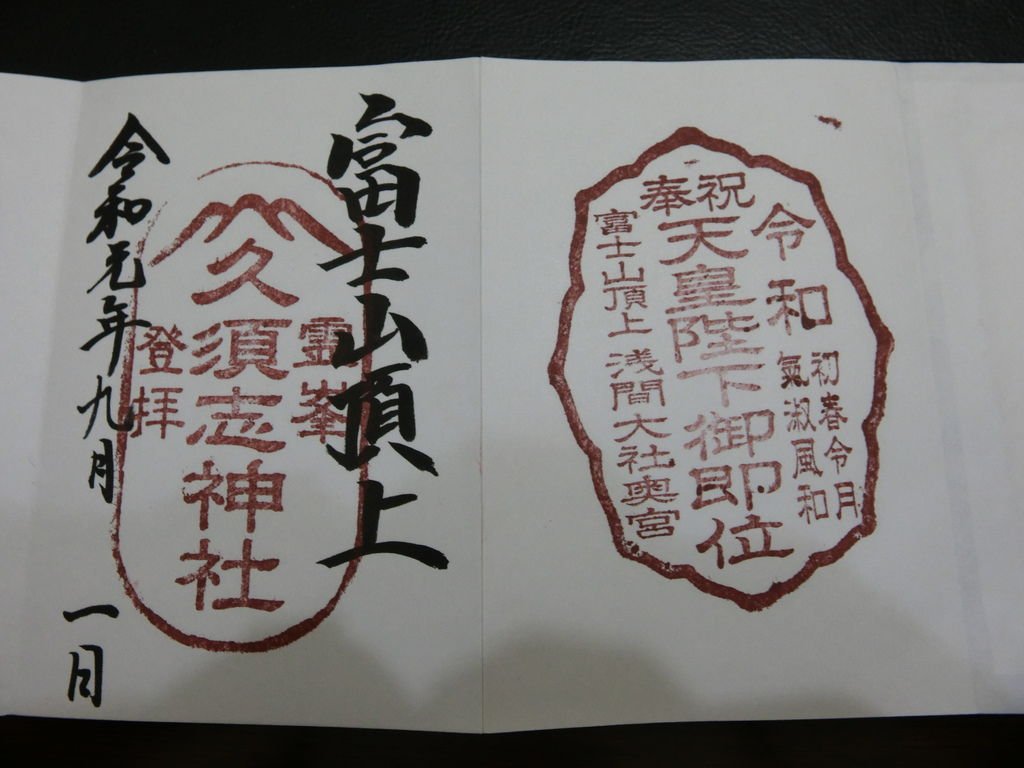 奉祝
令和
初春令月
氣淑風和
天皇陛下御即位
富士山頂上浅間大社奥宮
富士山頂上
靈峯
登拝
久須志神社
令和元年九月一日